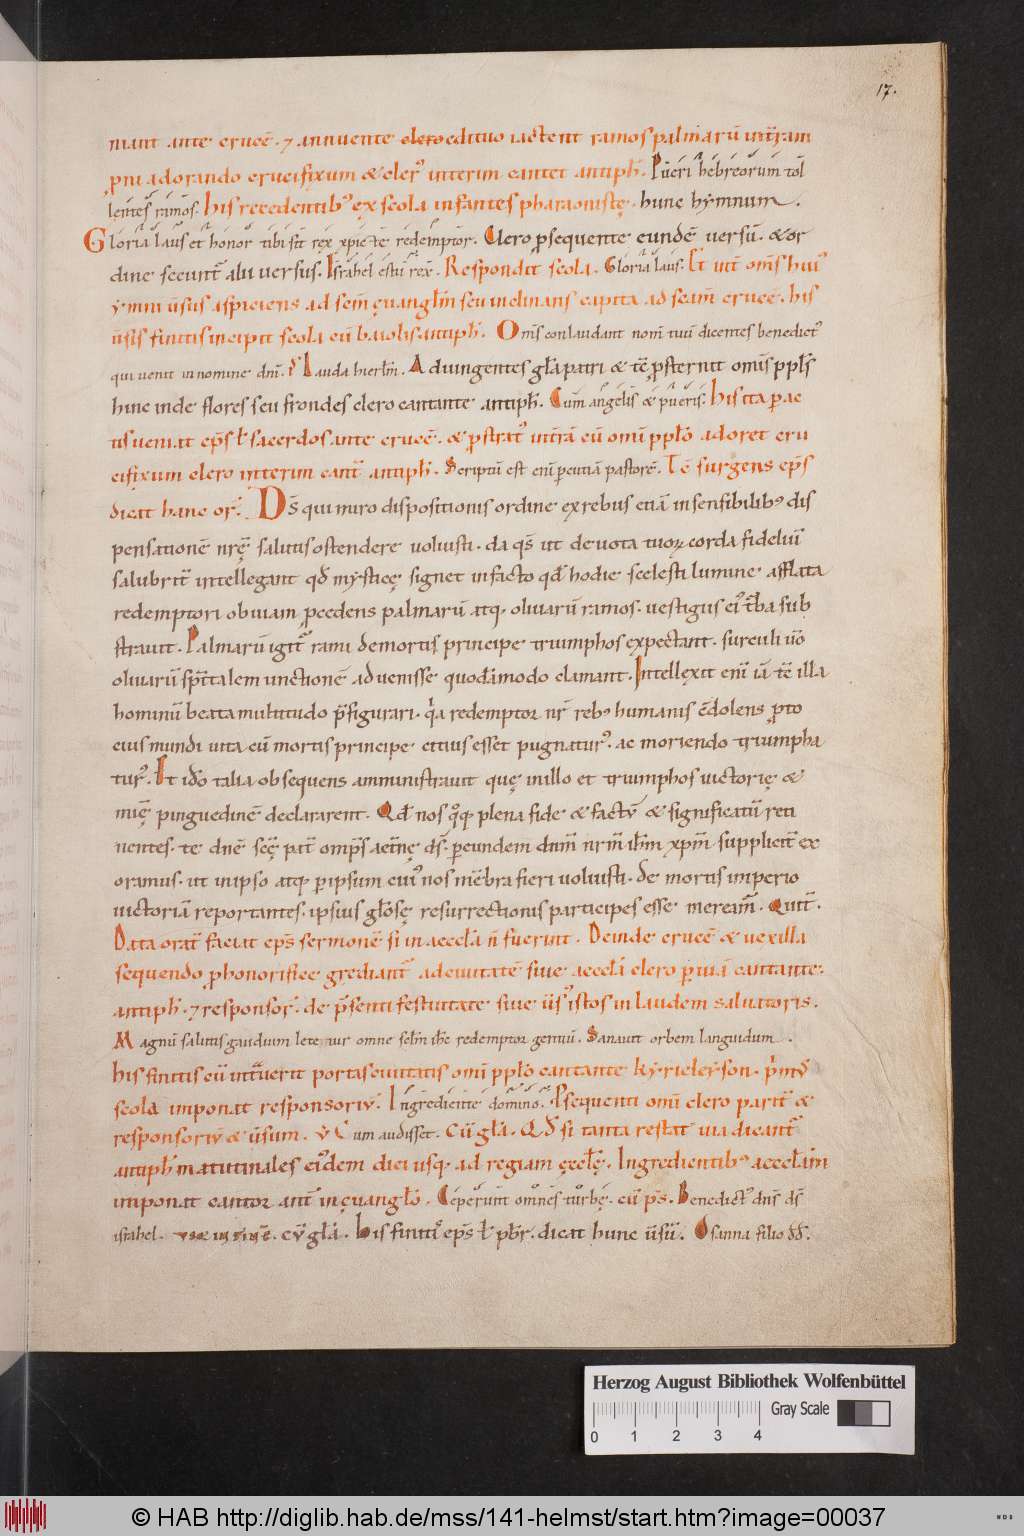 17.
niant ante crucē. ⁊ annuente clero edituo iactent ramos palmarū int̄ ram
pni adorando crucifixum & cler᷒ interim cantet antiph̄. Pueri hebreorum tol
lentes ramos. his recedentib᷒ ex scola infantes pharaonistę. hunc hymnum.
Gloria laus et honor tibi sit rex xp̄icte redemptor. Clero ꝓsequente eundē versū. & or
dine secunt̄ alii versus. Israhel es tu rex̄. Respondit scola. Gloria laus. Et uīt om̄s hui᷒
ymni ūsus aspiciens ad sem̄ ęuangl̄m seu inclinans capita ad scām crucē. his
ūsīs finitis incipit scola cū baiolis antiph̄. Om̄s conlaudant nom̄ tuū dicentes benedict᷒
qui uenit in nomine dn̄i. Lauda hierl̄m. Aduingentes gl̄a patri & tē ꝓsternit om̄is ppl̄s
hinc inde flores seu frondes clero cantante antiph̄. Cum angelis & pueris. his ita ꝑac
tis ueniat ep̄s ł sacerdos ante crucē. & ꝓstrat᷒ int̄rā cū omī ppl̄o adoret cru
cifixum clero interim cant̄ antiph̄. Scriptū est enī ꝑcutiā pastorē. Tē surgens ep̄s
dicat hanc or̄. Ds̄ qui miro dispositionis ordine ex rebus etiā insensibilib᷒ dis
pensationē nr̄ę salutis ostendere uoluisti. da qs̄ ut deuota tuoꝝ corda fideliū
salubrit̄ intellegant qd̄ mysticę signet in facto qd̄ hodie cęlesti lumine afflata
redemptori obuiam ꝓcedens palmarū atq; oliuarū ramos. uestigiis ei᷒ t̄ba sub
strauit. Palmarū igit̄ rami de mortis principe triumphos expectant. surculi ū̄o
oliuarū sp̄italem unctionē aduenisse quodāmodo clamant. Intellexit enī iā tē illa
hominū beata multitudo p̄figurari. q̄a redemptor nr̄ reb᷒ humanis cōdolens ꝓ to
cius mundi uita cū mortis principe etius esset pugnatur᷒. ac moriendo triumpha
tur᷒. Et ido talia obsequens amministrauit quę in illo et triumphos uictorię &
mię pinguedinē declararent. Qd̄ nos qq plena fide & factū & significatū reti
nentes. te dn̄e scē pat̄ omp̄s aet̄nę ds̄. ꝑ eundem dnm̄ nrm̄ ih̄m xpm̄ supplicit̄ ex
oramus. ut in ipso atq; ꝑ ipsum cui᷒ nos mēbra fieri uoluisti. de mortis imperio
uictoriā reportantes. ipsius gl̄osę resurrectionis participes esse meream̄. Quit̄.
Data orat̄ faciat ep̄s sermonē si in aeccl̄a n̄ fuerint. Deinde crucē & uexilla
sequendo ꝓ honorifice grediant̄ ad ciuitatē siue aeccl̄ā clero ꝑ uiā cantante.
antiph̄. ⁊ responsor̄. de p̄senti festiuitate siue ūs᷒ istos in laudem saluatoris.
Magnū salutis gaudium letetur omne sęl̄m ih̄c redemptor gentiū. Sanauit orbem languidum.
his finitis cū int̄uerit portas ciuitatis omī ppl̄o cantante kyrieleyson. p̄mō
scola imponat responsoriū. Ingrediente domino. Psequenti omī clero parit̄ &
responsoriū & ūsum. v̄ Cum audisset. Cū gl̄a. Qd̄ si tanta restat uia dicant̄
antiph̄ matutinales ei᷒dem diei usq; ad regiam ęccl̄ę. Ingredientib᷒ aeccl̄am
imponat cantor ant̄ in ęuangl̄o. Ceperunt omnes turbę. cū ps̄. Benedict᷒ dn̄s ds̄
israhel. cū gl̄a. his finit̄ ep̄s ł pb̄r. dicat hunc ūsū. Osanna filio dd̄.
Herzog August Bibliothek Wolfenbüttel
Gray Scale
0 1 2 3 4
© HAB http://diglib.hab.de/mss/141-helmst/start.htm?image=00037